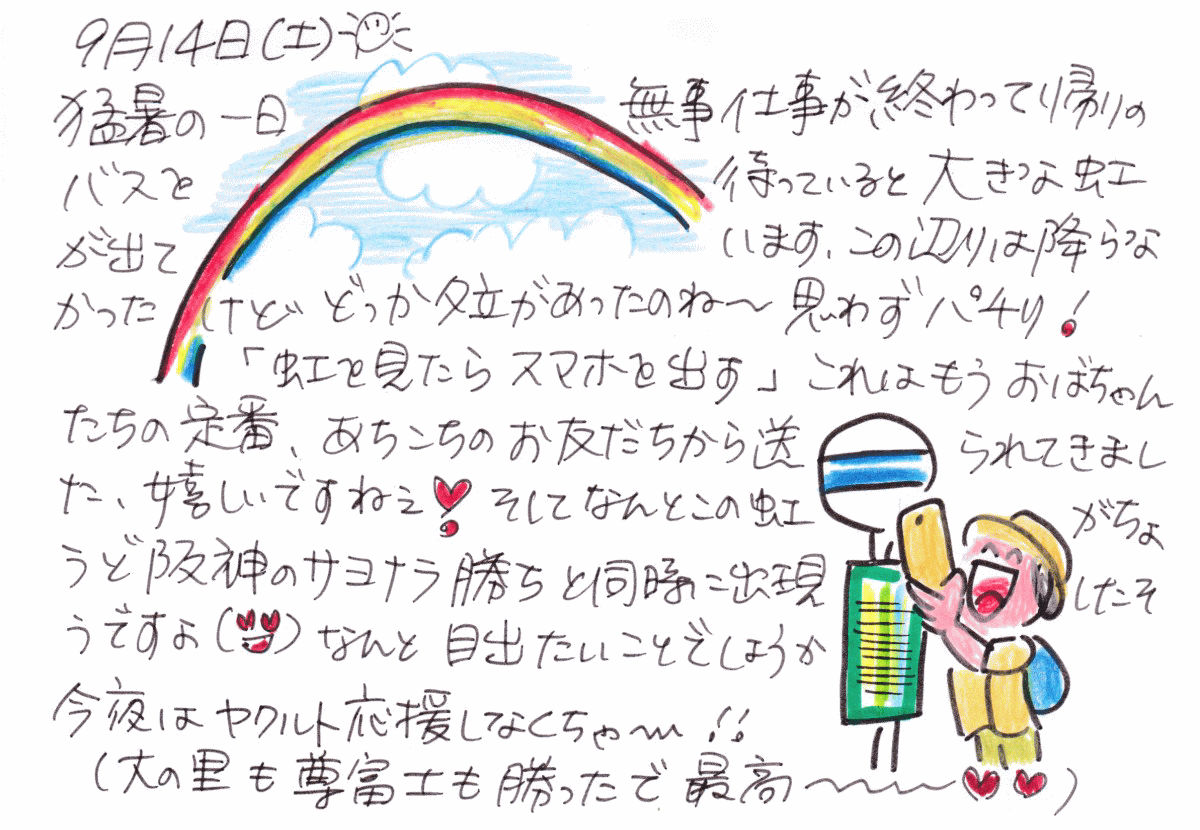 9月14日(土)
猛暑の一日 無事仕事が終わって帰りの
バスを 待っていると大きな虹
が出て います、この辺りは降らな
かったけど どっか夕立があったのね〜 思わずパチリ!
「虹を見たらスマホを出す」これはもうおばちゃん
たちの定番、あちこちのお友だちから送 られてきまし
た、嬉しいですねぇ! そしてなんとこの虹 がちょ
うど阪神のサヨナラ勝ちと同時に出現 したそ
うですよ() なんと目出たいことでしょうか
今夜はヤクルト応援しなくちゃ〜!!
(大の里も尊富士も勝ったで最高〜)